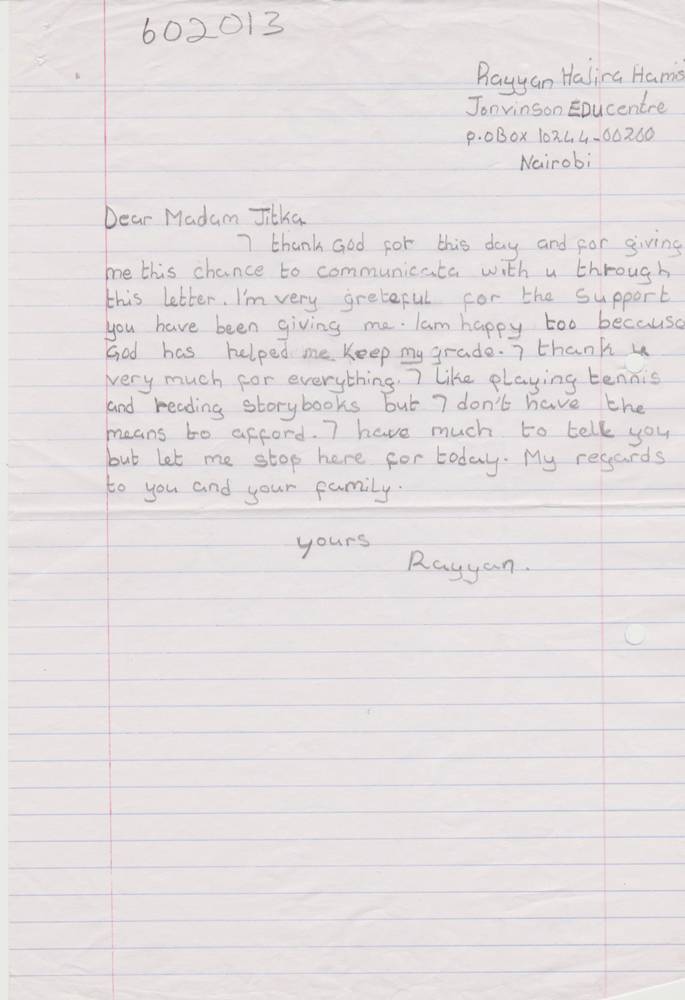 602013
Rayyan Hajira Hamis
Jonvinson EDUcentre
P.O BOX 10244-00200
Nairobi
Dear Madam Jitka
I thank God for this day and for giving
me this chance to communicata with u through
this letter. I'm very greteful for the support
you have been giving me. Iam happy too because
God has helped me keep my grade. I thank u
very much for everything. I like playing tennis
and reading storybooks but I don't have the
means to afford. I have much to tell you
but let me stop here for today. My regards
to you and your family.
yours
Rayyan.